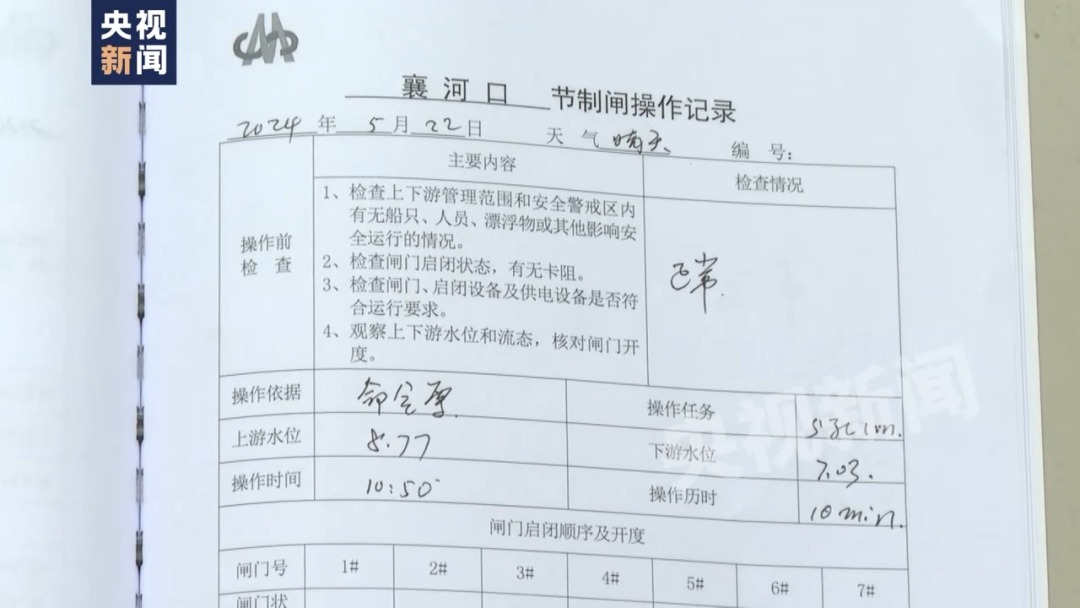 央视
新闻
襄河口 节制闸操作记录
2024年 5月22日 天气 晴天 编号：
主要内容 检查情况
操作前
检查
1、检查上下游管理范围和安全警戒区内
有无船只、人员、漂浮物或其他影响安
全运行的情况。
2、检查闸门启闭状态，有无卡阻。
3、检查闸门、启闭设备及供电设备是否符
合运行要求。
4、观察上下游水位和流态，核对闸门开
度。
正常
操作依据 操作任务
上游水位 8.77 下游水位 7.03.
操作时间 10:50 操作历时 10min.
闸门启闭顺序及开度
闸门号 1# 2# 3# 4# 5# 6# 7#
闸门状
央视新闻